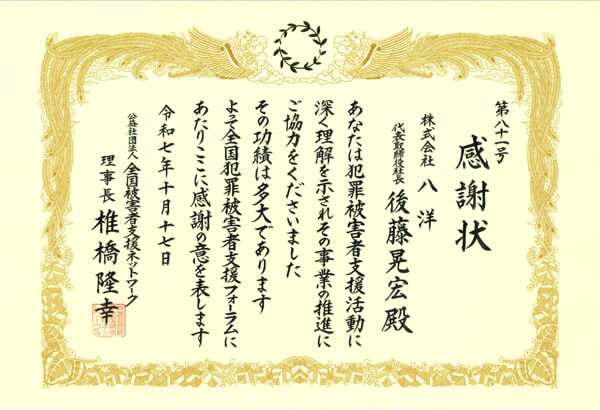 第八十一号
感謝状
株式会社 八洋
代表取締役社長 後藤晃宏殿
あなたは犯罪被害者支援活動に
深く理解を示されその事業の推進に
ご協力をくださいました
その功績は多大であります
よって全国犯罪被害者支援フォーラムに
あたりここに感謝の意を表します
令和七年十月十七日
公益社団法人 全国被害者支援ネットワーク
理事長 椎橋隆幸